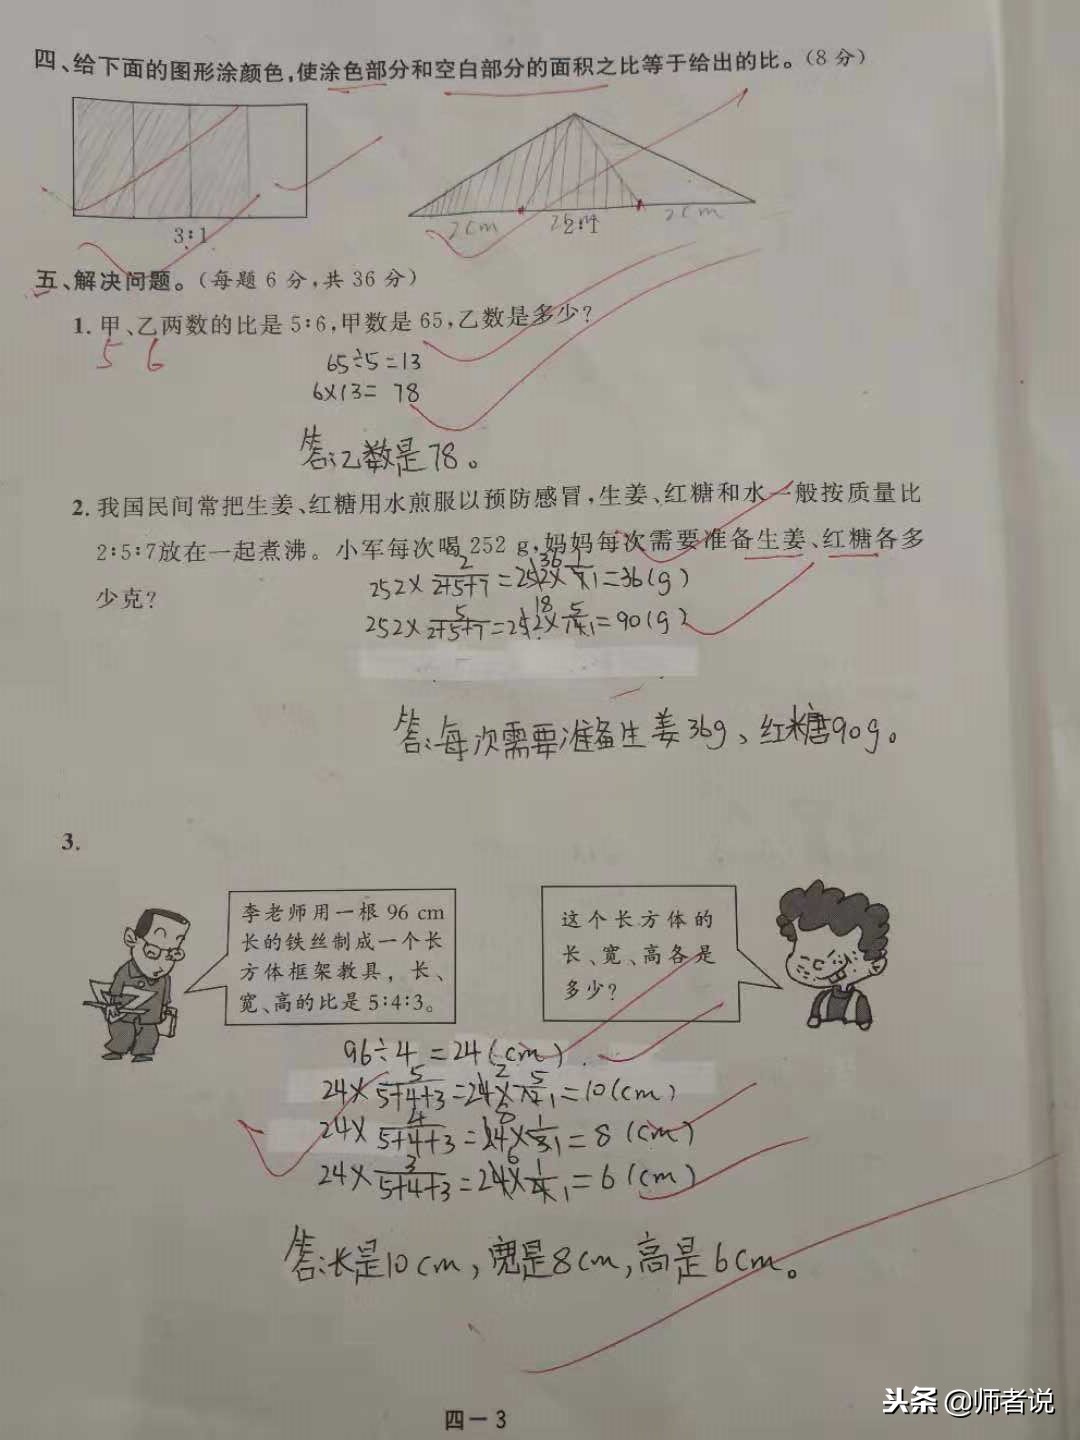 四、给下面的图形涂颜色,使涂色部分和空白部分的面积之比等于给出的比。(8分)
3:1
2cm 2cm 2cm
2:1
五、解决问题。(每题6分,共36分)
1. 甲、乙两数的比是5:6,甲数是65,乙数是多少?
5 6
65÷5=13
6×13=78
答:乙数是78。
2. 我国民间常把生姜、红糖用水煎服以预防感冒,生姜、红糖和水一般按质量比
2:5:7放在一起煮沸。小军每次喝252 g,妈妈每次需要准备生姜、红糖各多
少克?
252×2/2+5+7=252×1/7=36(g)
252×5/2+5+7=252×5/14=90(g)
答:每次需要准备生姜36g、红糖90g。
3.
李老师用一根96 cm
长的铁丝制成一个长
方体框架教具,长、
宽、高的比是5:4:3。
这个长方体的
长、宽、高各是
多少?
96÷4=24(cm)
24×5/5+4+3=24×5/12=10(cm)
24×4/5+4+3=24×1/3=8(cm)
24×3/5+4+3=24×1/4=6(cm)
答:长是10cm,宽是8cm,高是6cm。
四-3
头条 @师者说